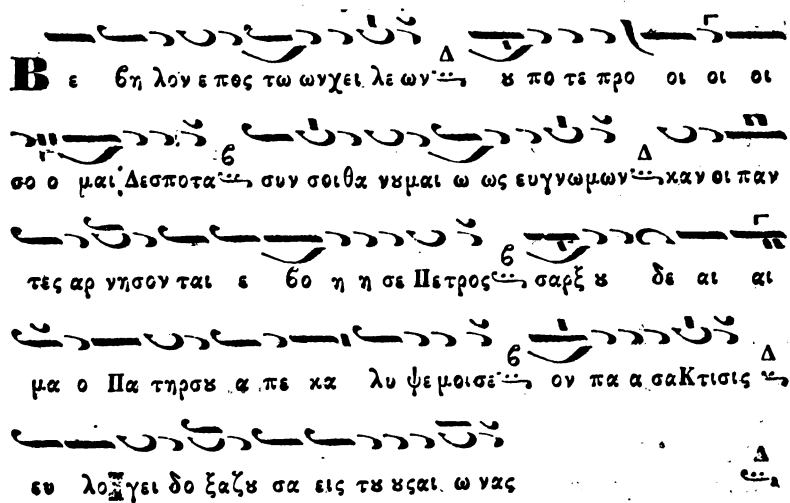 Βε βη λον ε πος τω ων χει λε ων Δ ȣ πο τε προ οι οι οι
σο ο μαι Δεσποτα β συν σοι θα νȣμαι ω ως ευγνωμων Δ καν οι παν
τες αρ νησον ται ε βο η η σε Πετρος β σαρξ ȣ δε αι αι
μα ο Πα τηρ σȣ α πε κα λυ ψε μοι σε β ον πα α σα Κτισις Δ
ευ λο γει δο ξαζȣ σα εις τȣ ȣς αι ω νας Δ